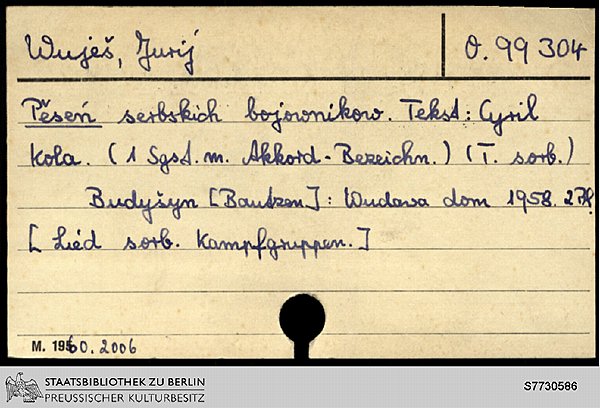 Wuješ, Jurij
O. 99 304
Pěseń serbskich bojownikow. Tekst: Cyril
Kola. (1 Sgst. m. Akkord-Bezeichn.) (T. sorb.)
Budyšyn [Bautzen]: Wudawa dom 1958. 2 Bl.
[Lied sorb. Kampfgruppen.]
M. 1960. 2006
STAATSBIBLIOTHEK ZU BERLIN
PREUSSISCHER KULTURBESITZ
S7730586